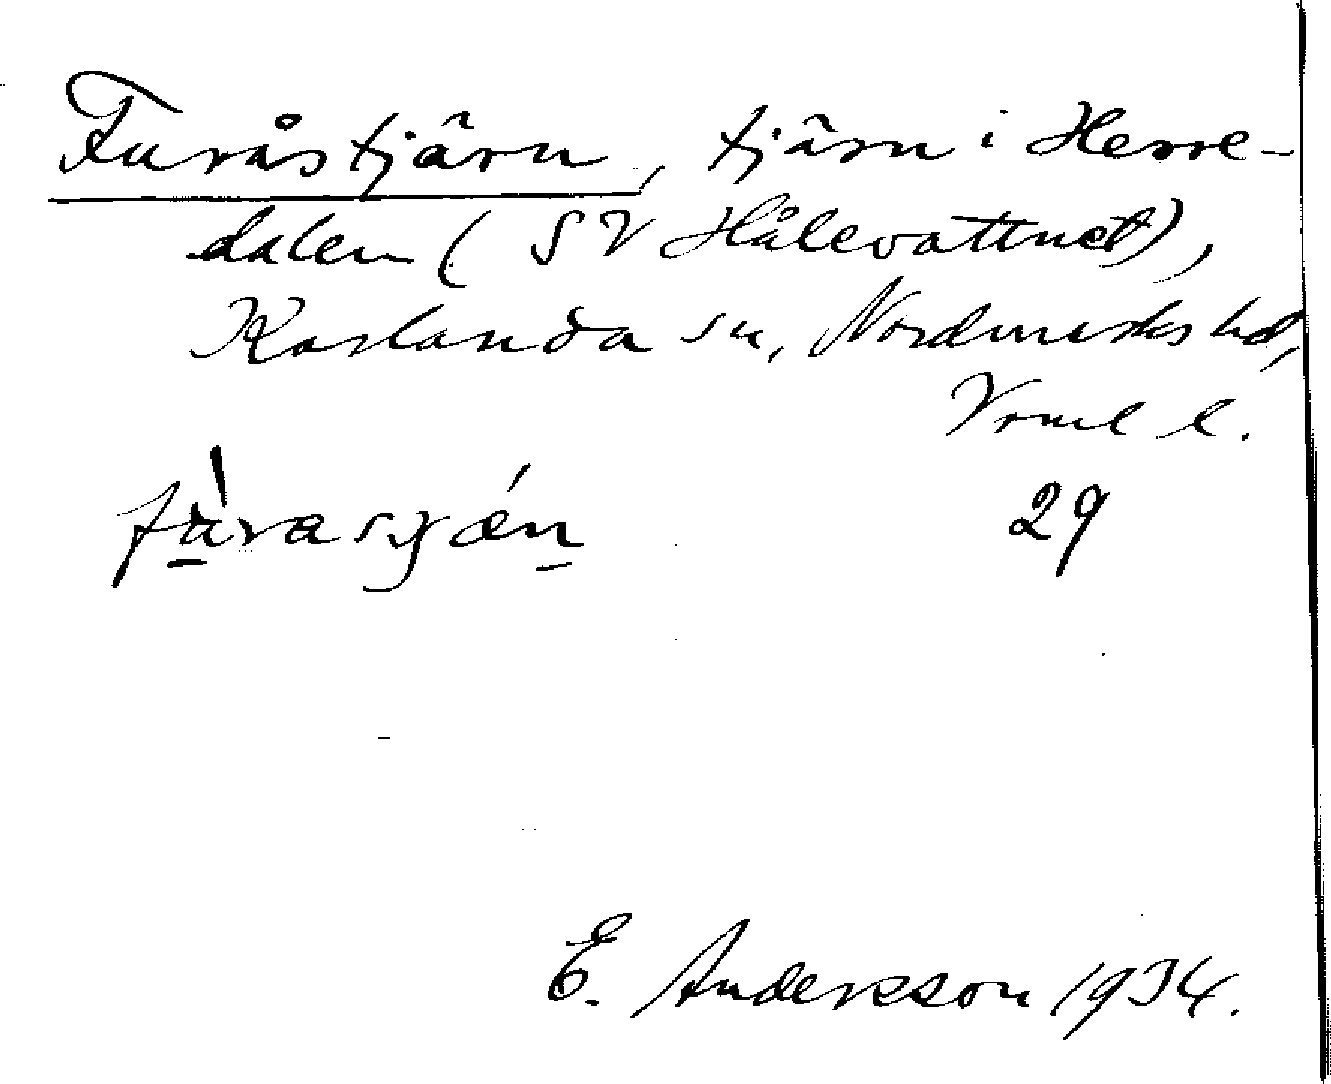 Furåstjärn, tjärn i Herre-
dalen (SV Hålevattnet),
Karlanda sn, Nordmarks hd,
Vrml l.
fùrasjǽn 29
E. Andersson 1934.